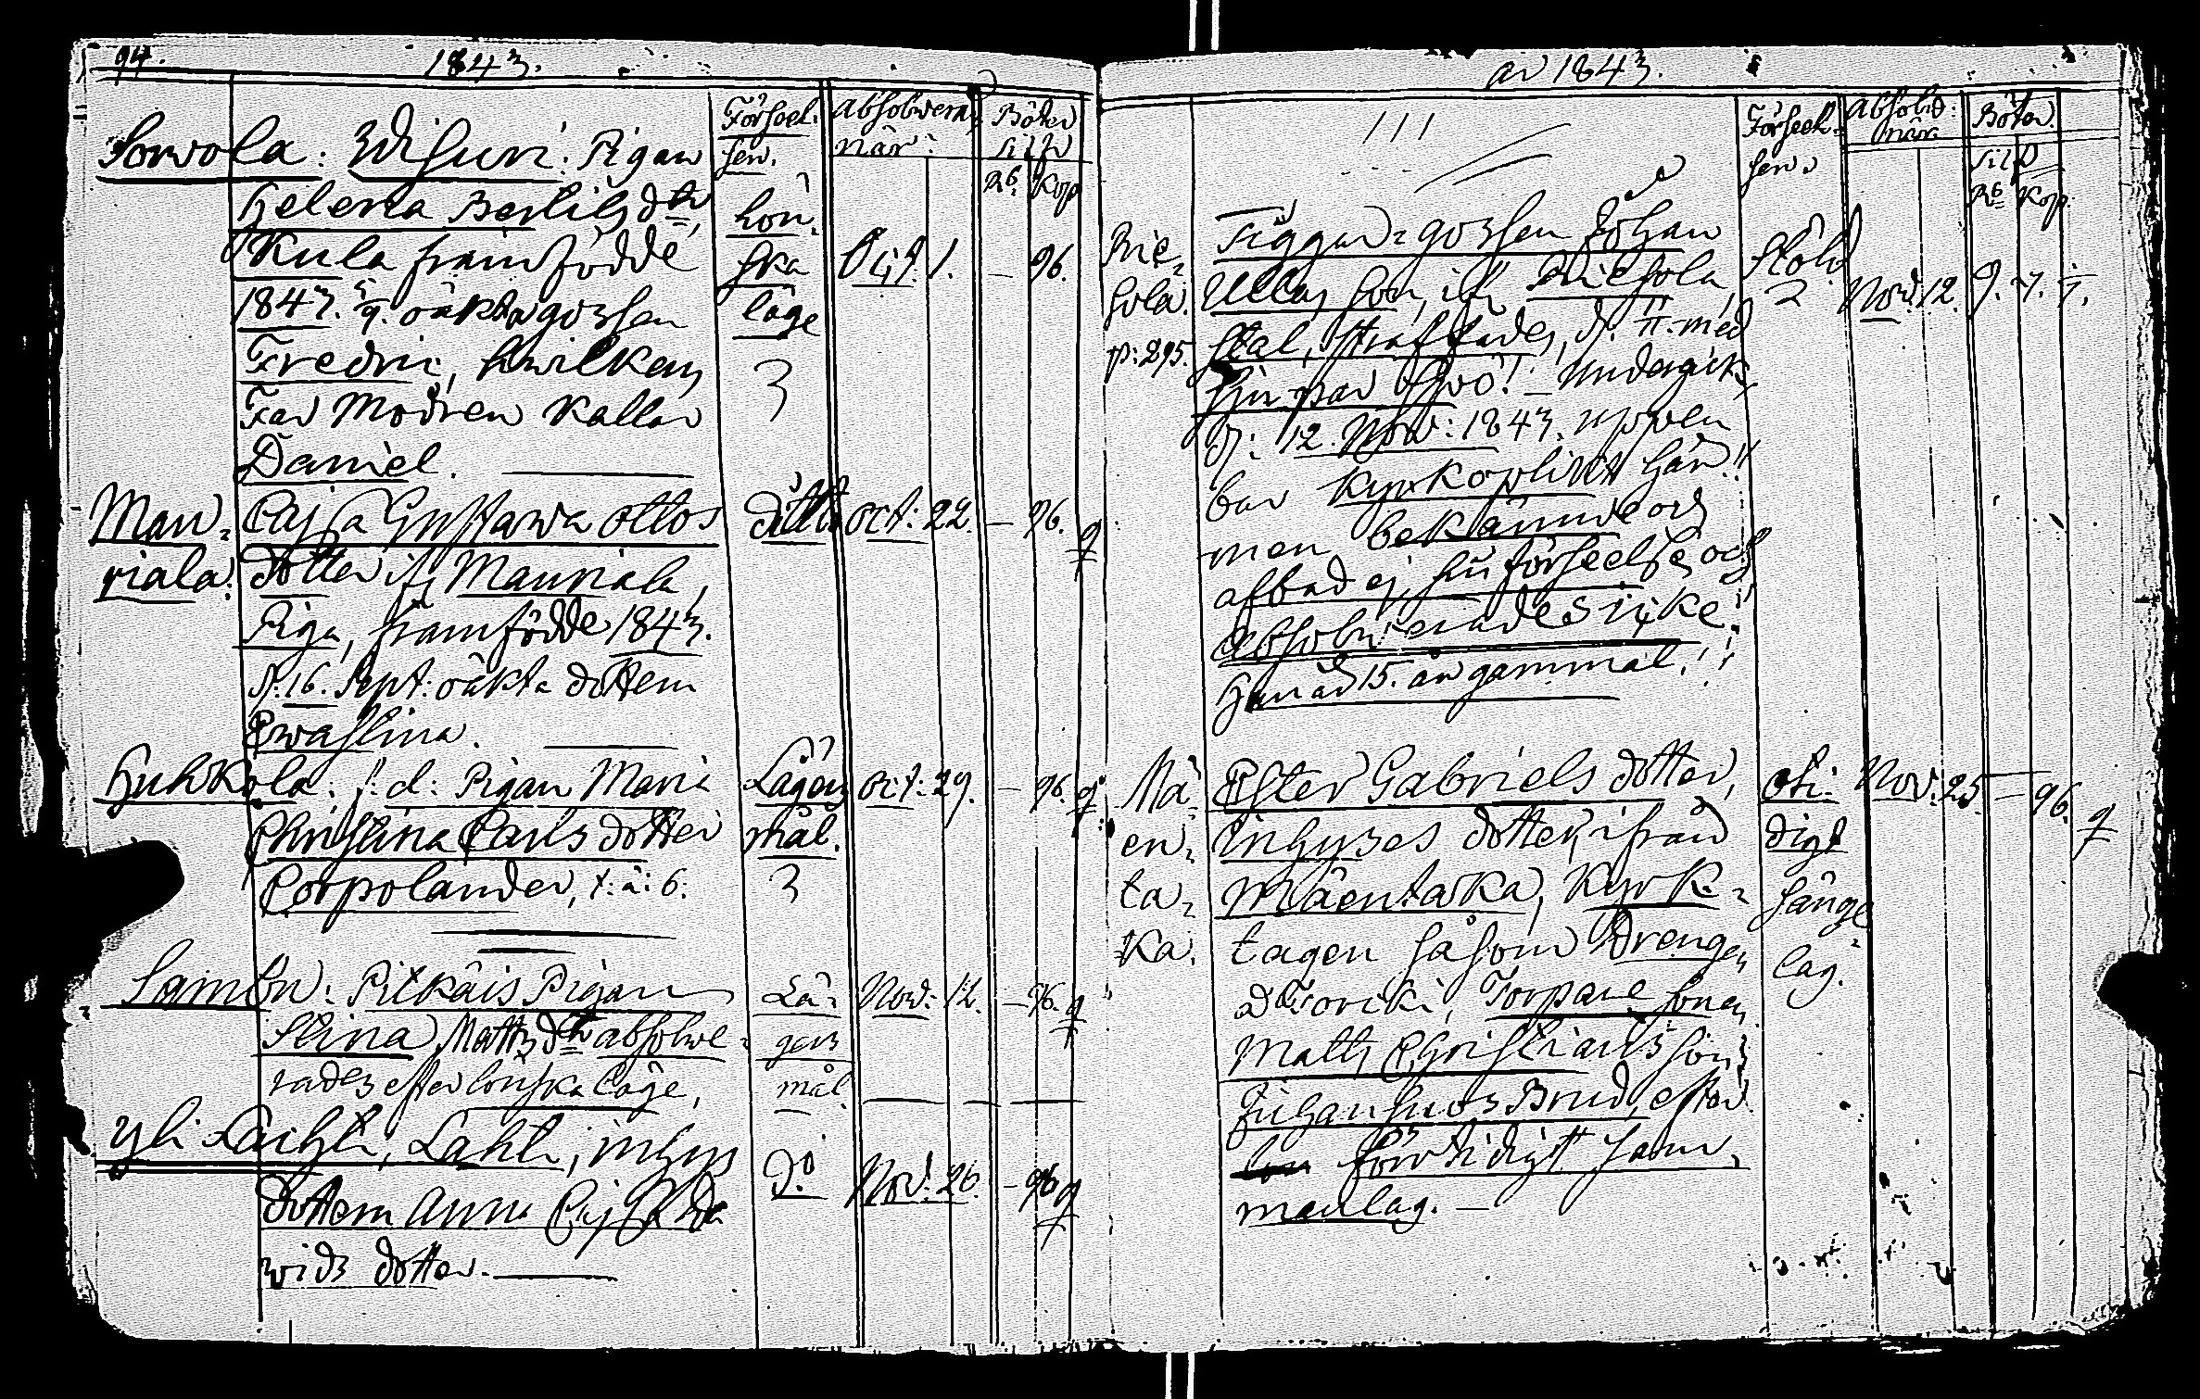 94. 1843.
Försel:
sen.
Absolvera,
när:
Böter
Silfr
Rb. Kop
Sorvola: Pigan
Helena Bertils dtr
Kula framfödde
1843. oäkta gossen
Fredric, hwilken
Far Modren kallar
Daniel.
kon,
ska
läge
3
1. — 96.
Man,
niala:
Cajsa Gustawa Ottos
dotter ifr Manniala,
Piga, framfödde 1843.
d. 16. Sept: oäkta dottern
Ewastina.
ditto oct: 22. — 96.
Huhkola: Pigan Maria
Christina Carls dotter
Corpolander,
Lägers
mål.
3
oct: 29. — 96.
Pitkäis Pigan
Stina Matts dtr absolwe-
rades efter lönska läge,
Lä-
gers
mål.
Nov: 12. — 96.
Yli Laihti, Lahti, inhys
dottern Anna Cajsa Da
wids dotter.
Do Nov: 26. — 96
år 1843.
Förseel:
sen
Absolv:
när
Böter
Silfr
Rb Kop.
Rie,
hola:
p: 295.
Tiggar-gossen Johan
son, ifr Riehola
stal, straffades, d. 11. med
tju par spö! — Undergick
d: 12. Nov: 1843. uppen
bar kyrkoplikt här!!
men bekände och
afbad ej sin förseelse och
absolverades icke!
Han är 15. år gammal!!
Stöld
2
Nov: 12.
Mä-
en,
ta,
ka.
Ester Gabriels dotter,
inhyses dotter, ifrån
Mäentaka, Kyrk-
tagen såsom Drengen
Torpare sonen
Matts Christians sons
Brud, efter
förtidigt sam,
manlag. —
oti:
digt
sänge
lag.
Nov: 25 — 96.